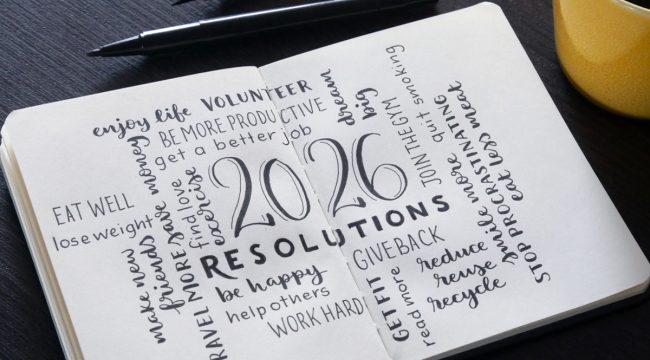 enjoy life
VOLUNTEER
BE MORE PRODUCTIVE
get a better job
dream
big
EAT WELL
lose weight
make new
friends
save money
RAVEL MORE
find love
exercise
2026
RESOLUTIONS
be happy
help others
WORK HARD
GIVE BACK
JOIN THE GYM
quit smoking
smile more
STOP PROCRASTINATING
eat less meat
GET FIT
read more
reduce
reuse
recycle